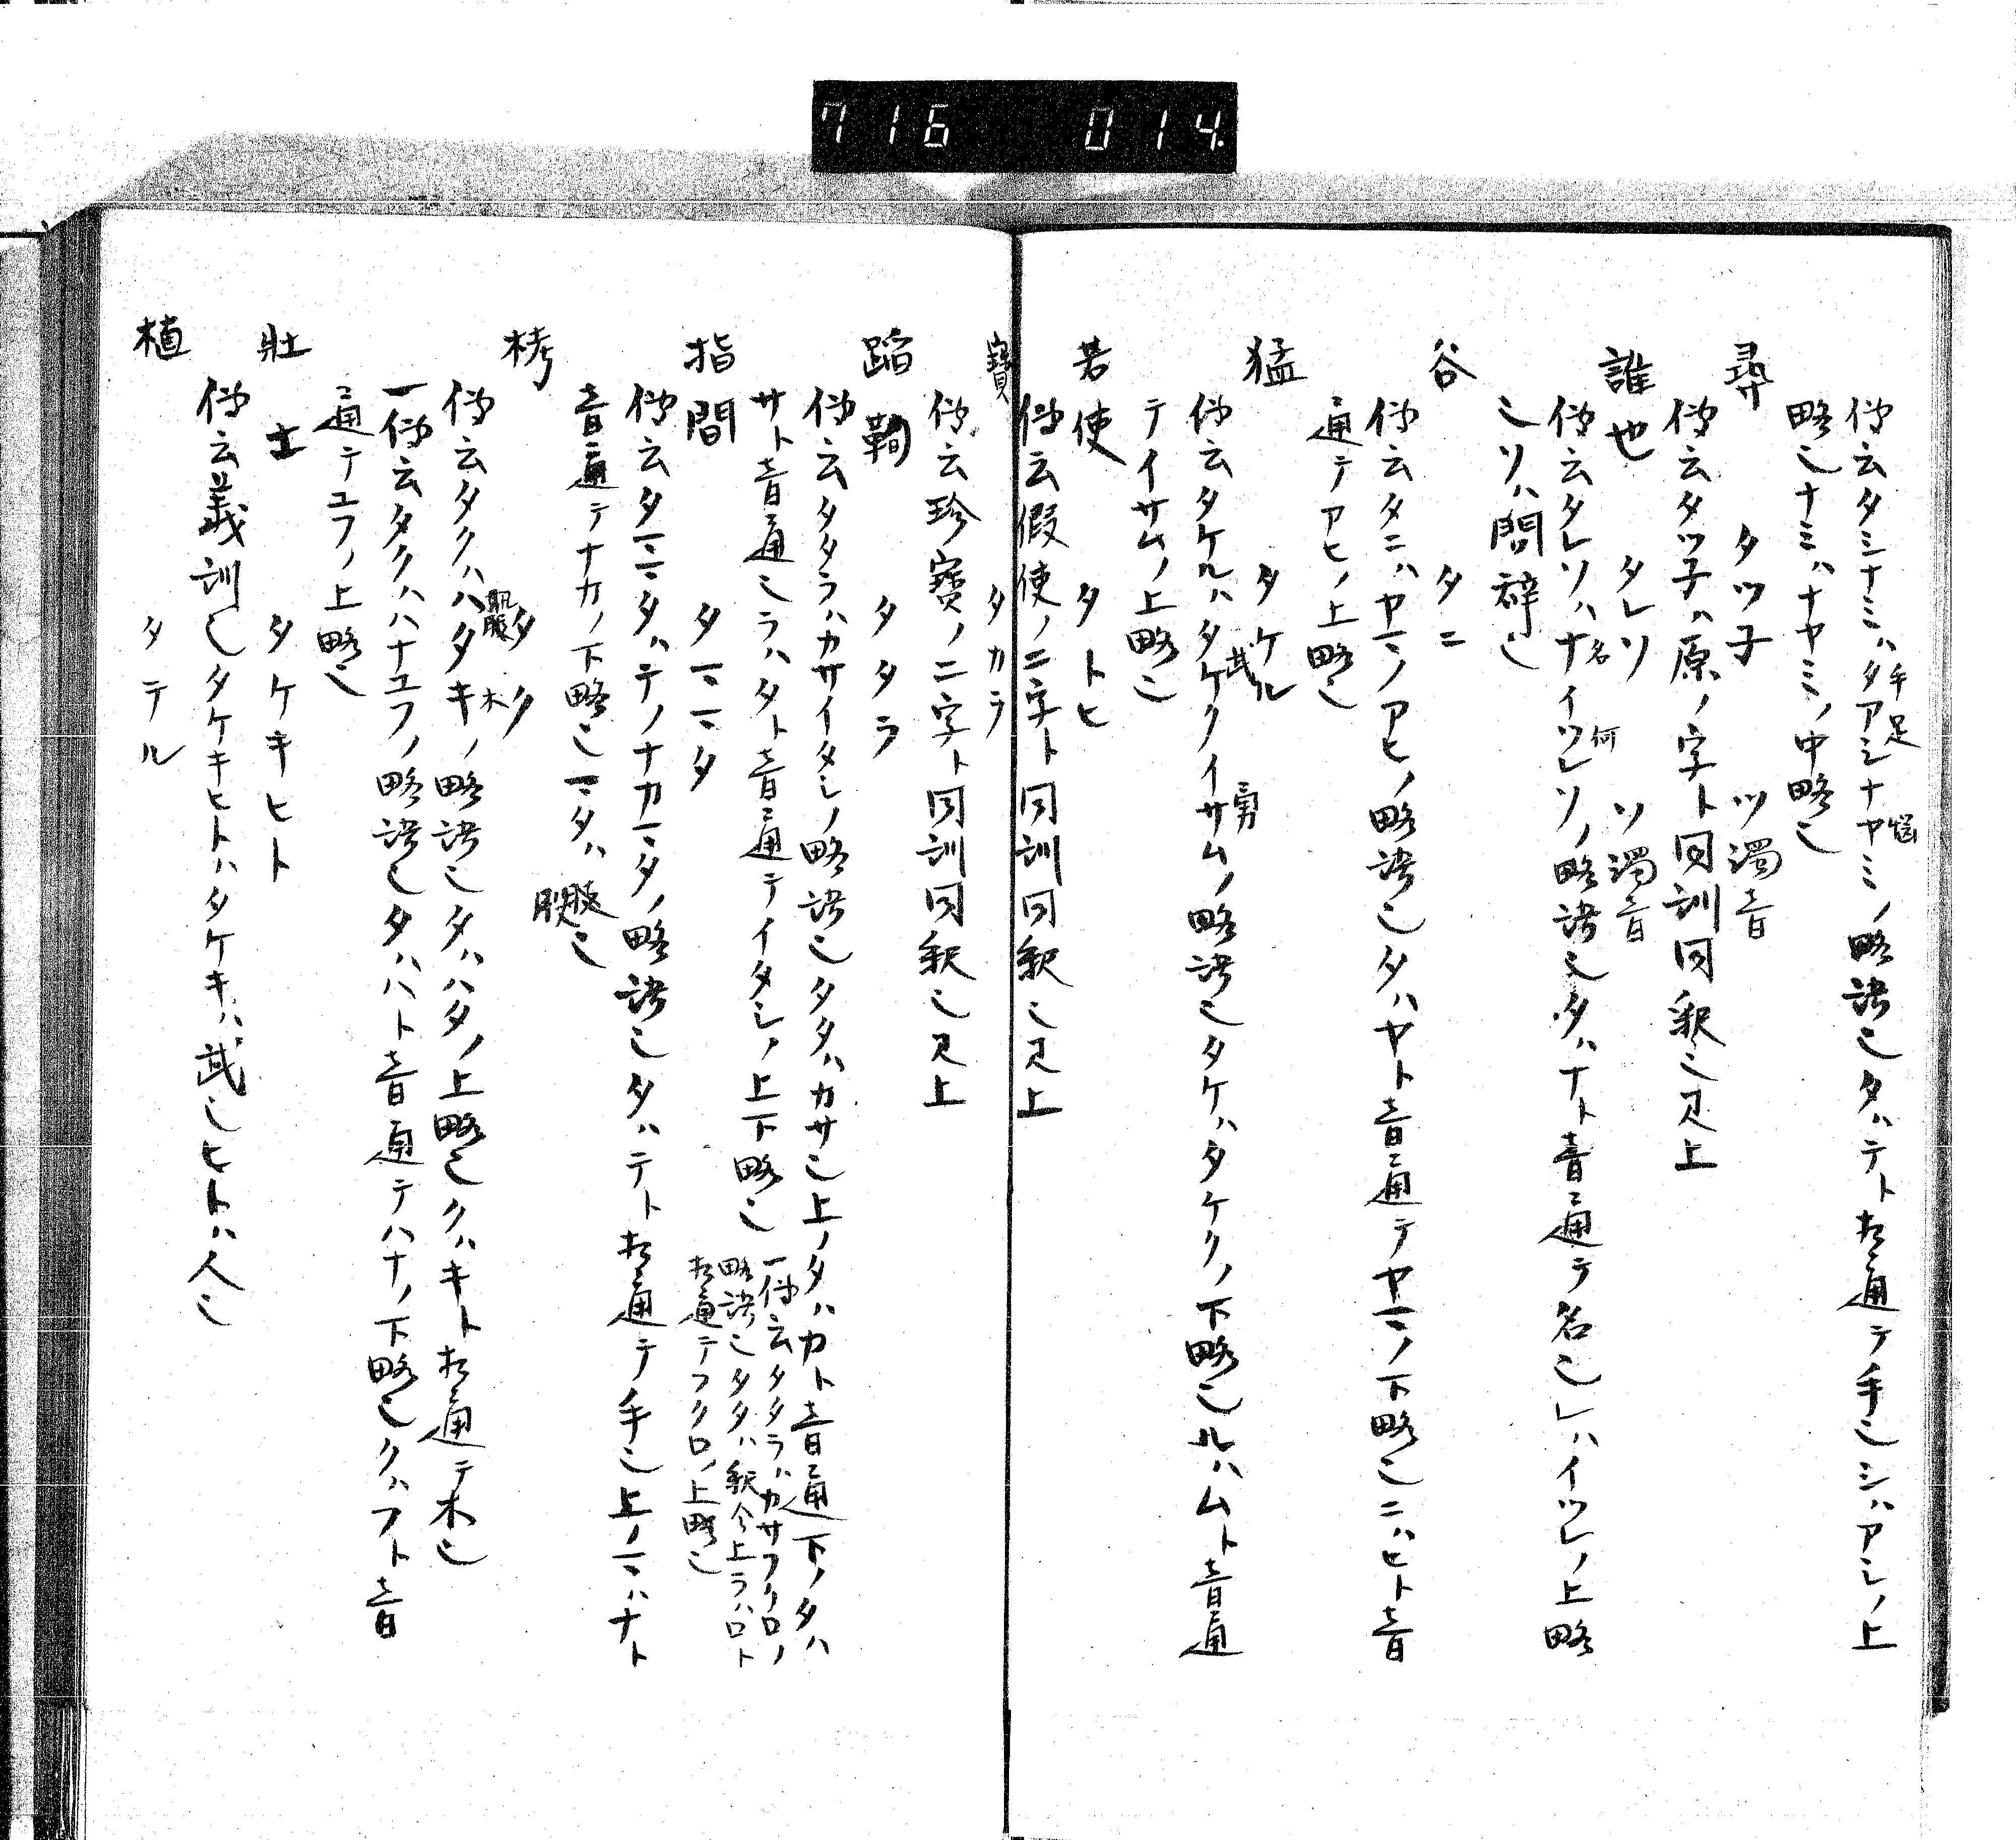 716 014
仍云タシナミハタアシナヤミノ略語也タハテト相通テ手也シハアシノ上
手足 悩
略也ナミハナヤミノ中略也
尋 タツ子 ツ濁音
仍云タツ子ハ原ノ字ト同訓同釈也見上
誰也 タレソ ソ濁音
仍云タレソハナイツレソノ略語也タハナト音通テ名也レハイツレノ上略
名 何
也ソハ問辞也
谷 タニ
仍云タニハヤマノアヒノ略語也タハヤト音通テヤマノ下略也ニハヒト音
通テアヒノ上略也
猛 タケル
仍云タケルハタケクイサムノ略語也タケハタケクノ下略也ルハムト音通
武 勇
テイサムノ上略也
若使 タトヒ
仍云假使ノ二字ト同訓同釈也見上
寶 タカラ
仍云珍寶ノ二字ト同訓同釈也見上
蹈鞴 タタラ
仍云タタラハカサイタシノ略語也タタハカサ也上ノタハカト音通下ノタハ
サト音通也ラハタト音通テイタシノ上下略也
一仍云タタラハカサフクロノ
略語也タタハ釈今上ラハロト
相通テフクロノ上略也
指間 タママタ
仍云タママタハテノナカマタノ略語也タハテト相通テ手也上ノマハナト
音通テナカノ下略也マタハ
也
栲 タク
仍云タクハハタキノ略語也タハハタノ上略也クハキト相通テ木也
木
一仍云タクハハナユフノ略語也タハハト音通テハナノ下略也クハフト音
通テユフノ上略也
壯士 タケキヒト
仍云義訓也タケキヒトハタケキハ武也ヒトハ人也
植 タテル